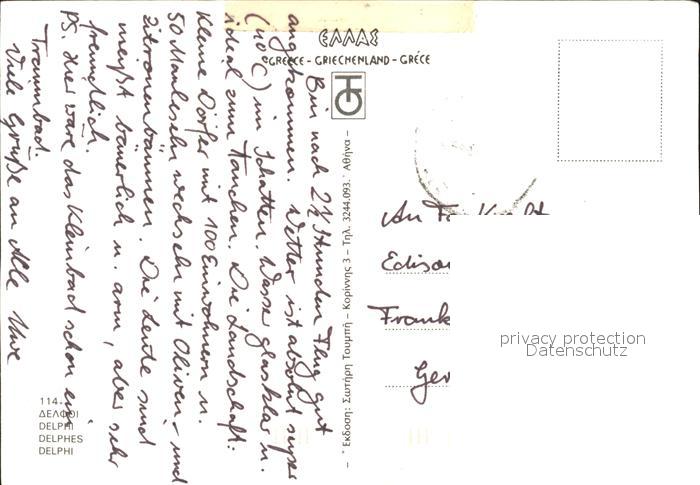 Bin nach 2½ Stunden Flug gut
angekommen. Wetter ist absolut super
(40°C) im Schatten. Wasser glasklar u.
ideal zum Tauchen. Die Landschaft:
kleine Dörfer mit 100 Einwohnern u.
50 Mauleseln wechseln mit Oliven- und
Zitronenbäumen. Die Leute sind
meist bäuerlich u. arm, aber sehr
freundlich.
PS. Hier wäre das Kleinbad schon ein
Traumbad.
Viele Grüße an Alle Uwe
ΕΛΛΑΣ
GREECE - GRIECHENLAND - GRÉCE
Έκδοση: Σωτήρη Τουμπή - Κορίννης 3 - Τηλ. 3244.093. Αθήνα -
An
Frank
Ger
privacy protection
Datenschutz
114-
ΔΕΛΦΟΙ
DELPHI
DELPHES
DELPHI